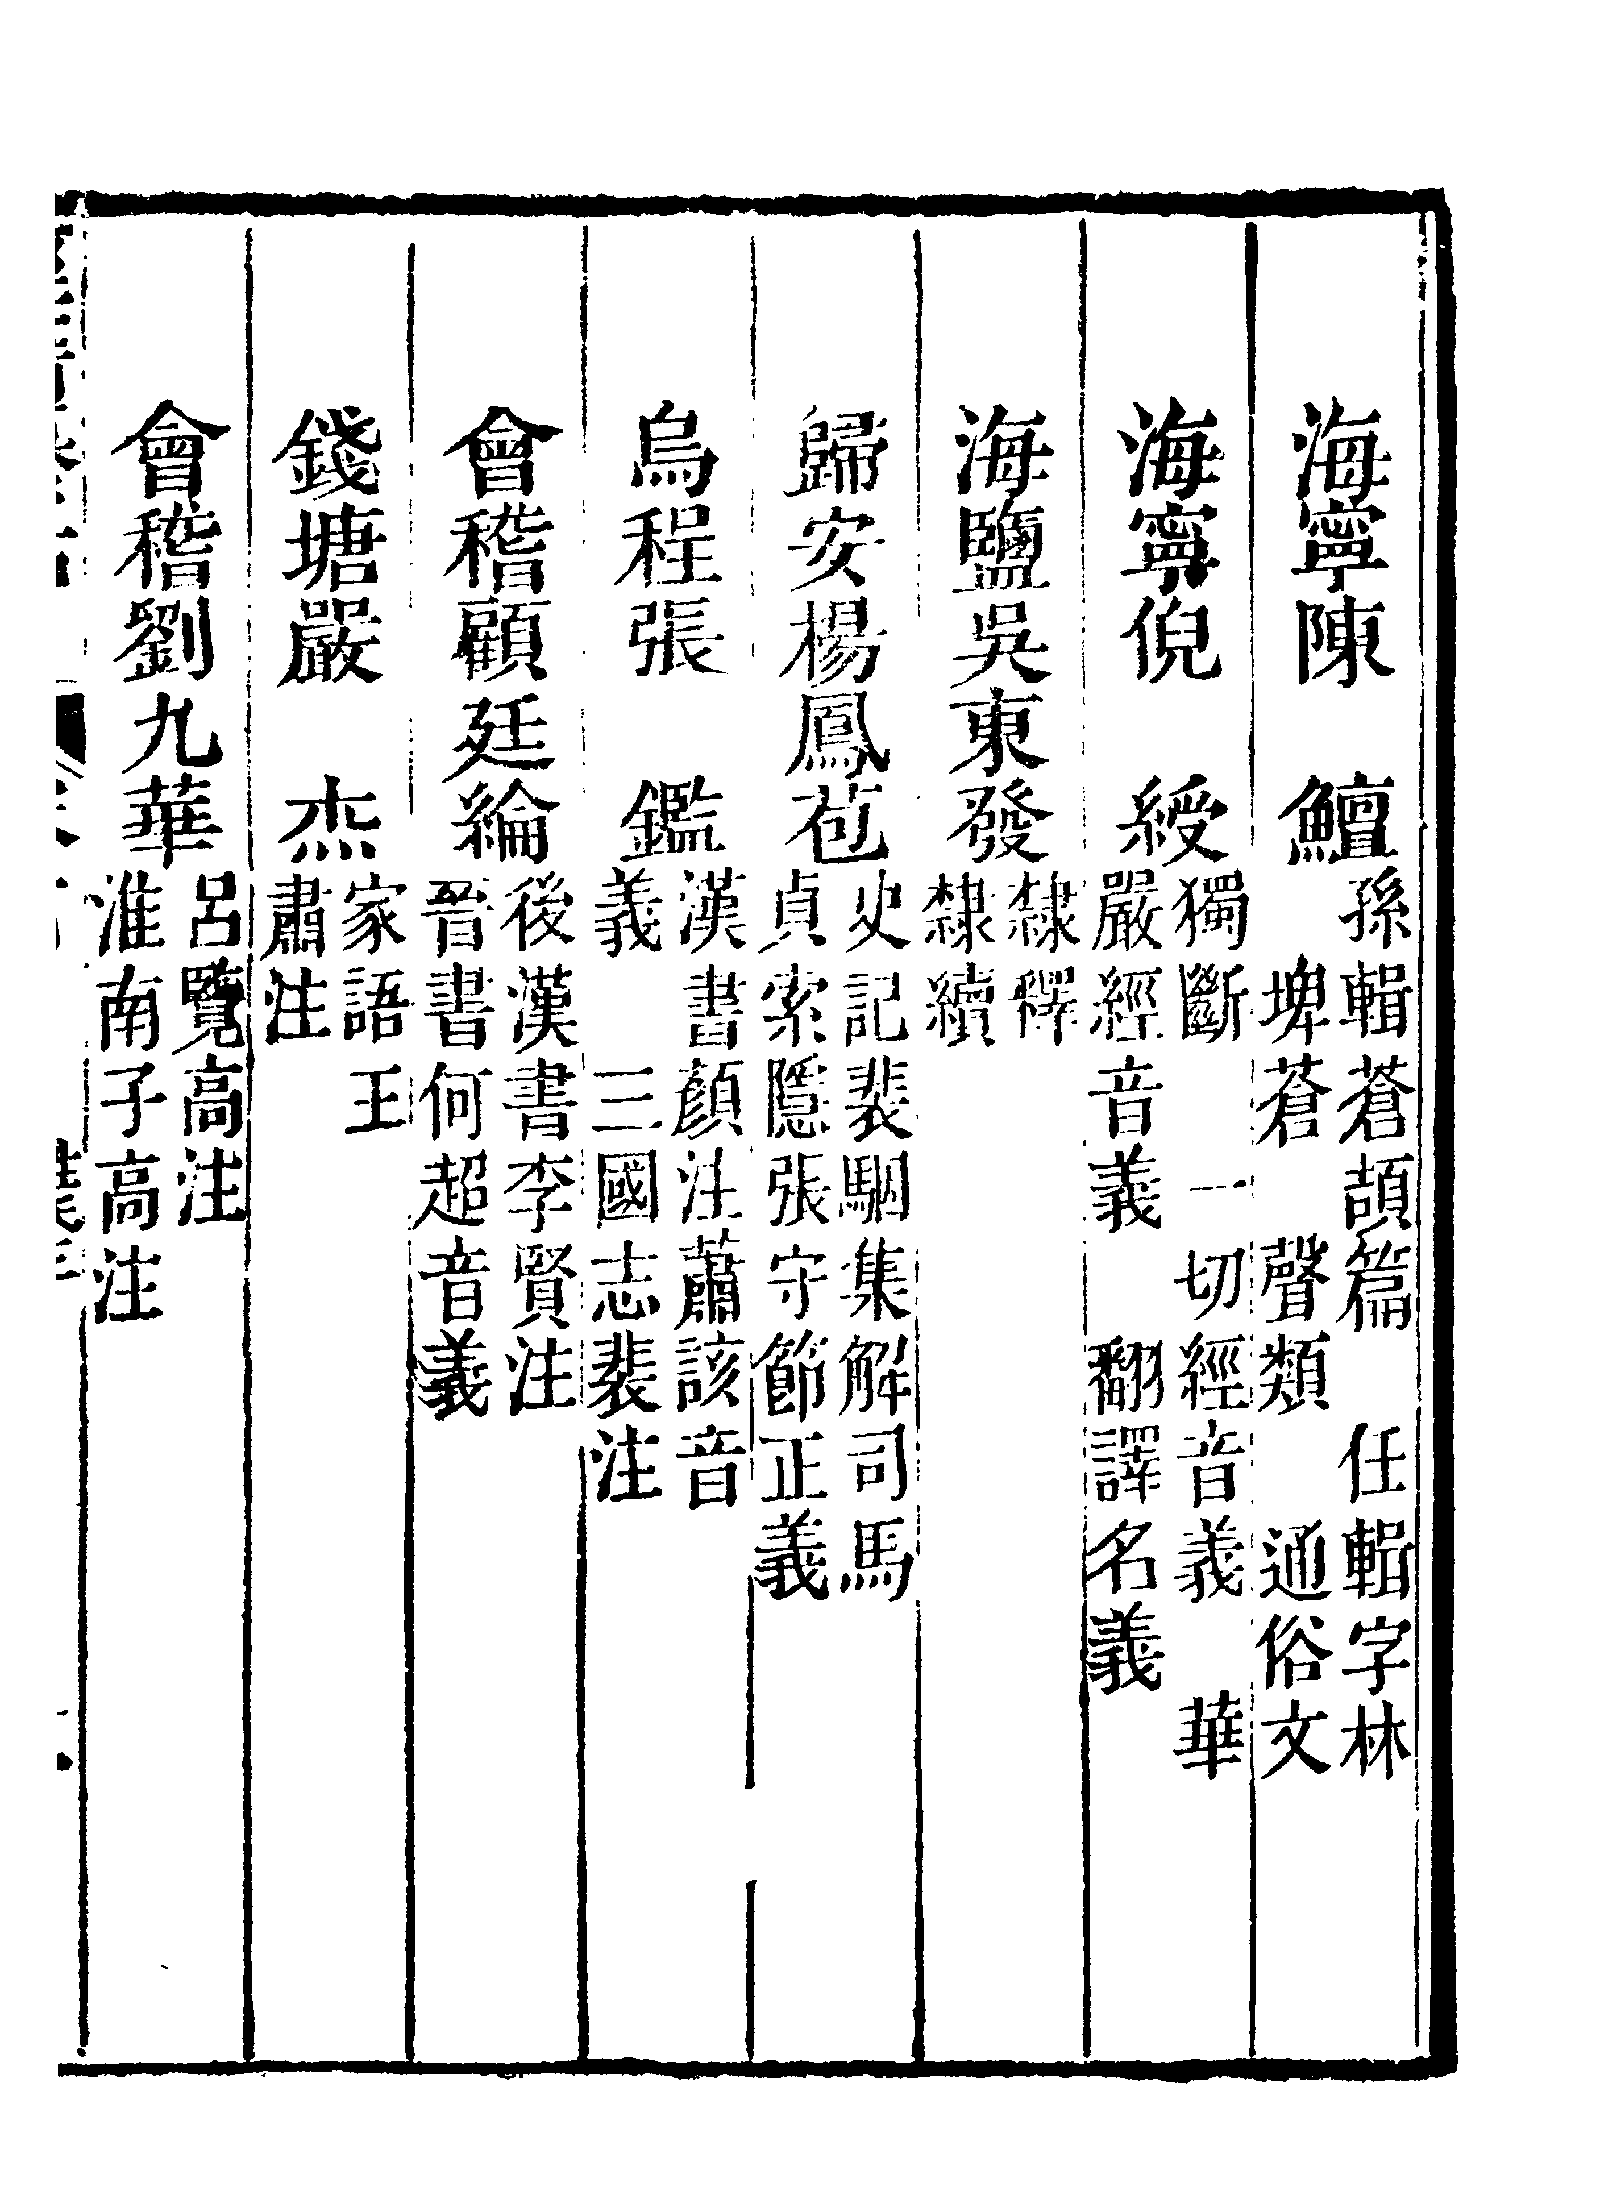 海寧陳　鱣
孫輯蒼頡篇　任輯字林
埤蒼　聲類　通俗文
海寧倪　綬
獨斷　一切經音義　華
嚴經音義　翻譯名義
海鹽吳東發
隸釋
隸續
歸安楊鳳苞
史記裴駰集解司馬
貞索隱張守節正義
烏程張　鑑
漢書顏注蕭該音
義　三國志裴注
會稽顧廷綸
後漢書李賢注
晉書何超音義
錢塘嚴　杰
家語王
肅注
會稽劉九華
呂覽高注
淮南子高注